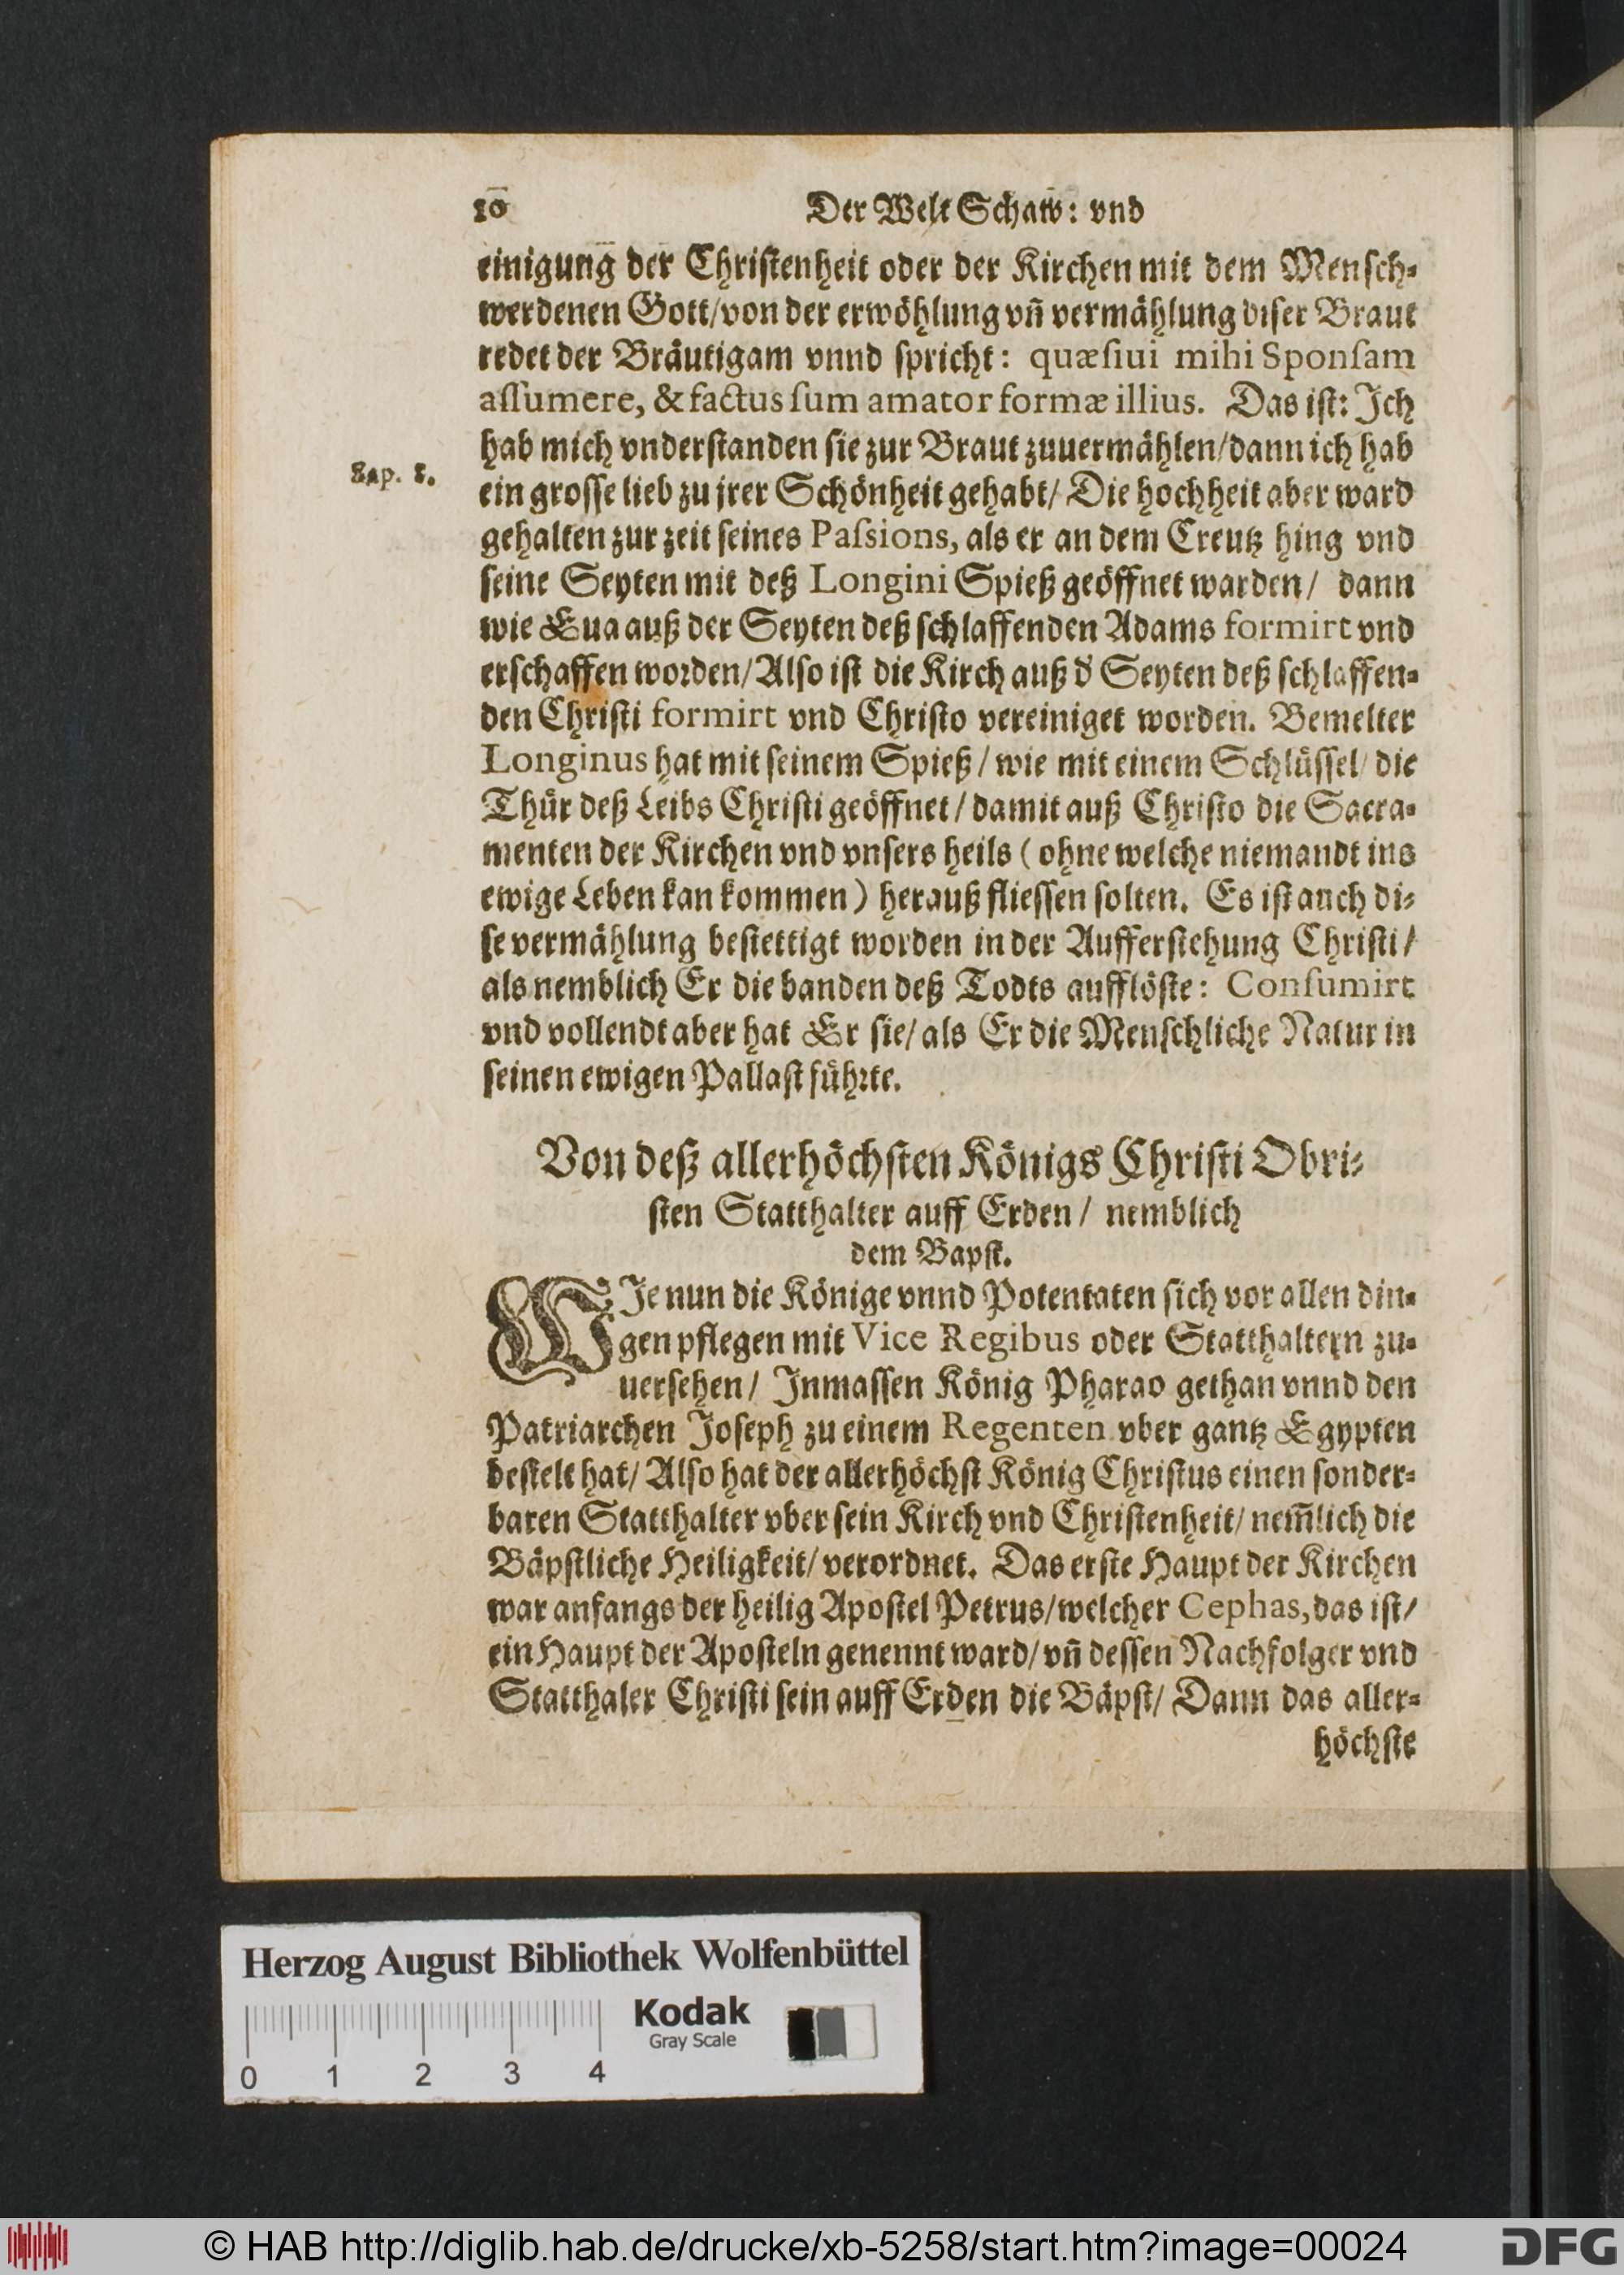 10 Der Welt Schaw: vnd
einigung der Christenheit oder der Kirchen mit dem Mensch-
werdenen Gott/von der erwöhlung vñ vermählung diser Braut
redet der Bräutigam vnnd spricht: quæsiui mihi Sponsam
assumere, & factus sum amator formæ illius. Das ist: Ich
hab mich vnderstanden sie zur Braut zuuermählen/dann ich hab
Sap. 8.
ein grosse lieb zu jrer Schönheit gehabt/ Die hochheit aber ward
gehalten zur zeit seines Passions, als er an dem Creutz hing vnd
seine Seyten mit deß Longini Spieß geöffnet warden/ dann
wie Eua auß der Seyten deß schlaffenden Adams formirt vnd
erschaffen worden/Also ist die Kirch auß d' Seyten deß schlaffen-
den Christi formirt vnd Christo vereiniget worden. Bemelter
Longinus hat mit seinem Spieß/ wie mit einem Schlüssel/ die
Thür deß Leibs Christi geöffnet/ damit auß Christo die Sacra-
menten der Kirchen vnd vnsers heils ( ohne welche niemandt ins
ewige Leben kan kommen ) herauß fliessen solten. Es ist auch di-
se vermählung bestettigt worden in der Aufferstehung Christi/
als nemblich Er die banden deß Todts aufflöste: Consumirt
vnd vollendt aber hat Er sie/ als Er die Menschliche Natur in
seinen ewigen Pallast führte.
Von deß allerhöchsten Königs Christi Obri-
sten Statthalter auff Erden/ nemblich
dem Bapst.
WIe nun die Könige vnnd Potentaten sich vor allen din-
gen pflegen mit Vice Regibus oder Statthaltern zu-
uersehen/ Inmassen König Pharao gethan vnnd den
Patriarchen Joseph zu einem Regenten vber gantz Egypten
bestelt hat/ Also hat der allerhöchst König Christus einen sonder-
baren Statthalter vber sein Kirch vnd Christenheit/ nem̄lich die
Bäpstliche Heiligkeit/ verordnet. Das erste Haupt der Kirchen
war anfangs der heilig Apostel Petrus/welcher Cephas, das ist/
ein Haupt der Aposteln genennt ward/ vñ dessen Nachfolger vnd
Statthaler Christi sein auff Erden die Bäpst/ Dann das aller-
höchste
Herzog August Bibliothek Wolfenbüttel
Kodak
Gray Scale
0 1 2 3 4
© HAB http://diglib.hab.de/drucke/xb-5258/start.htm?image=00024
DFG